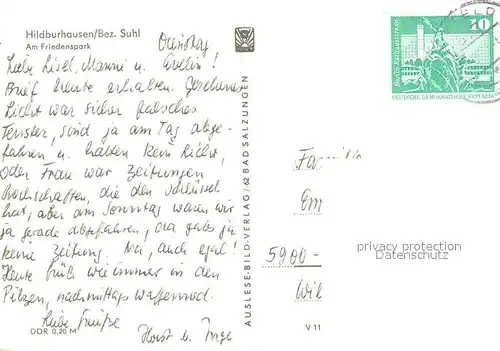 Hildburhausen/Bez. Suhl
Am Friedenspark
Dienstag
Liebe Lisel, Manni u. Evelin!
Brief heute erhalten. Gesehenes
Licht war sicher falsches
Fenster, sind ja am Tag abge-
fahren u. hatten kein Licht,
oder Frau war Zeitungen
hochschaffen, die den Schlüssel
hat, aber am Sonntag waren wir
ja gerade abgefahren, da gabs ja
keine Zeitung. Na, auch egal!
Heute früh wie immer in den
Pilzen, nachmittags Waffenrod.
Liebe Grüße
Horst u. Inge
DDR 0,20 M
AUSLESE-BILD-VERLAG / 62 BAD SALZUNGEN
V 11
Berlin, Rathausstraße
10
DEUTSCHE DEMOKRATISCHE REPUBLIK
ELD
Familie
Em
5900-
Wil
privacy protection
Datenschutz